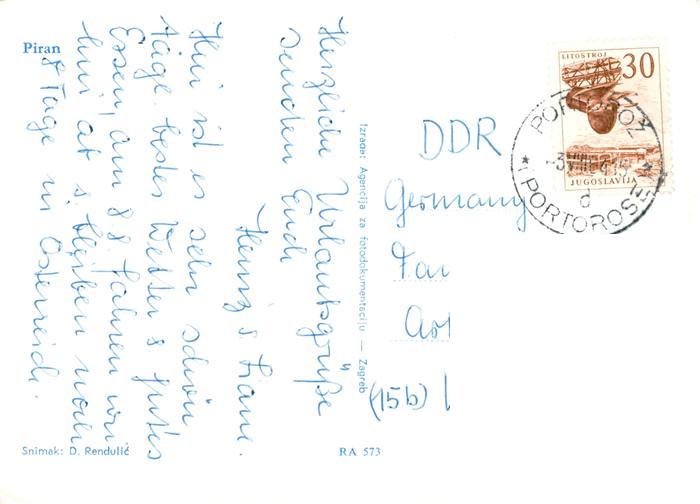 Piran
Herzliche Urlaubsgrüße
senden Euch
Heinz & Frau.
Hier ist es sehr schön
tägl. bestes Wetter & gutes
Essen, am 8.8. fahren wir
hier ab & bleiben noch
8 Tage in Österreich.
Izrađe: Agencija za fotodokumentaciju — Zagreb
DDR
Germany
(15b)
LITOSTROJ
30
JUGOSLAVIJA
PORTOROŽ
PORTOROSE
d
Snimak: D. Rendulić
RA 573